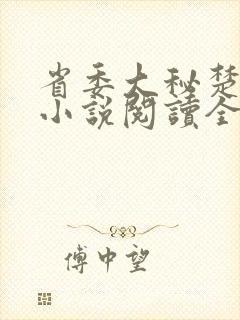 省委大秘楚
小說閱讀全
傅中望